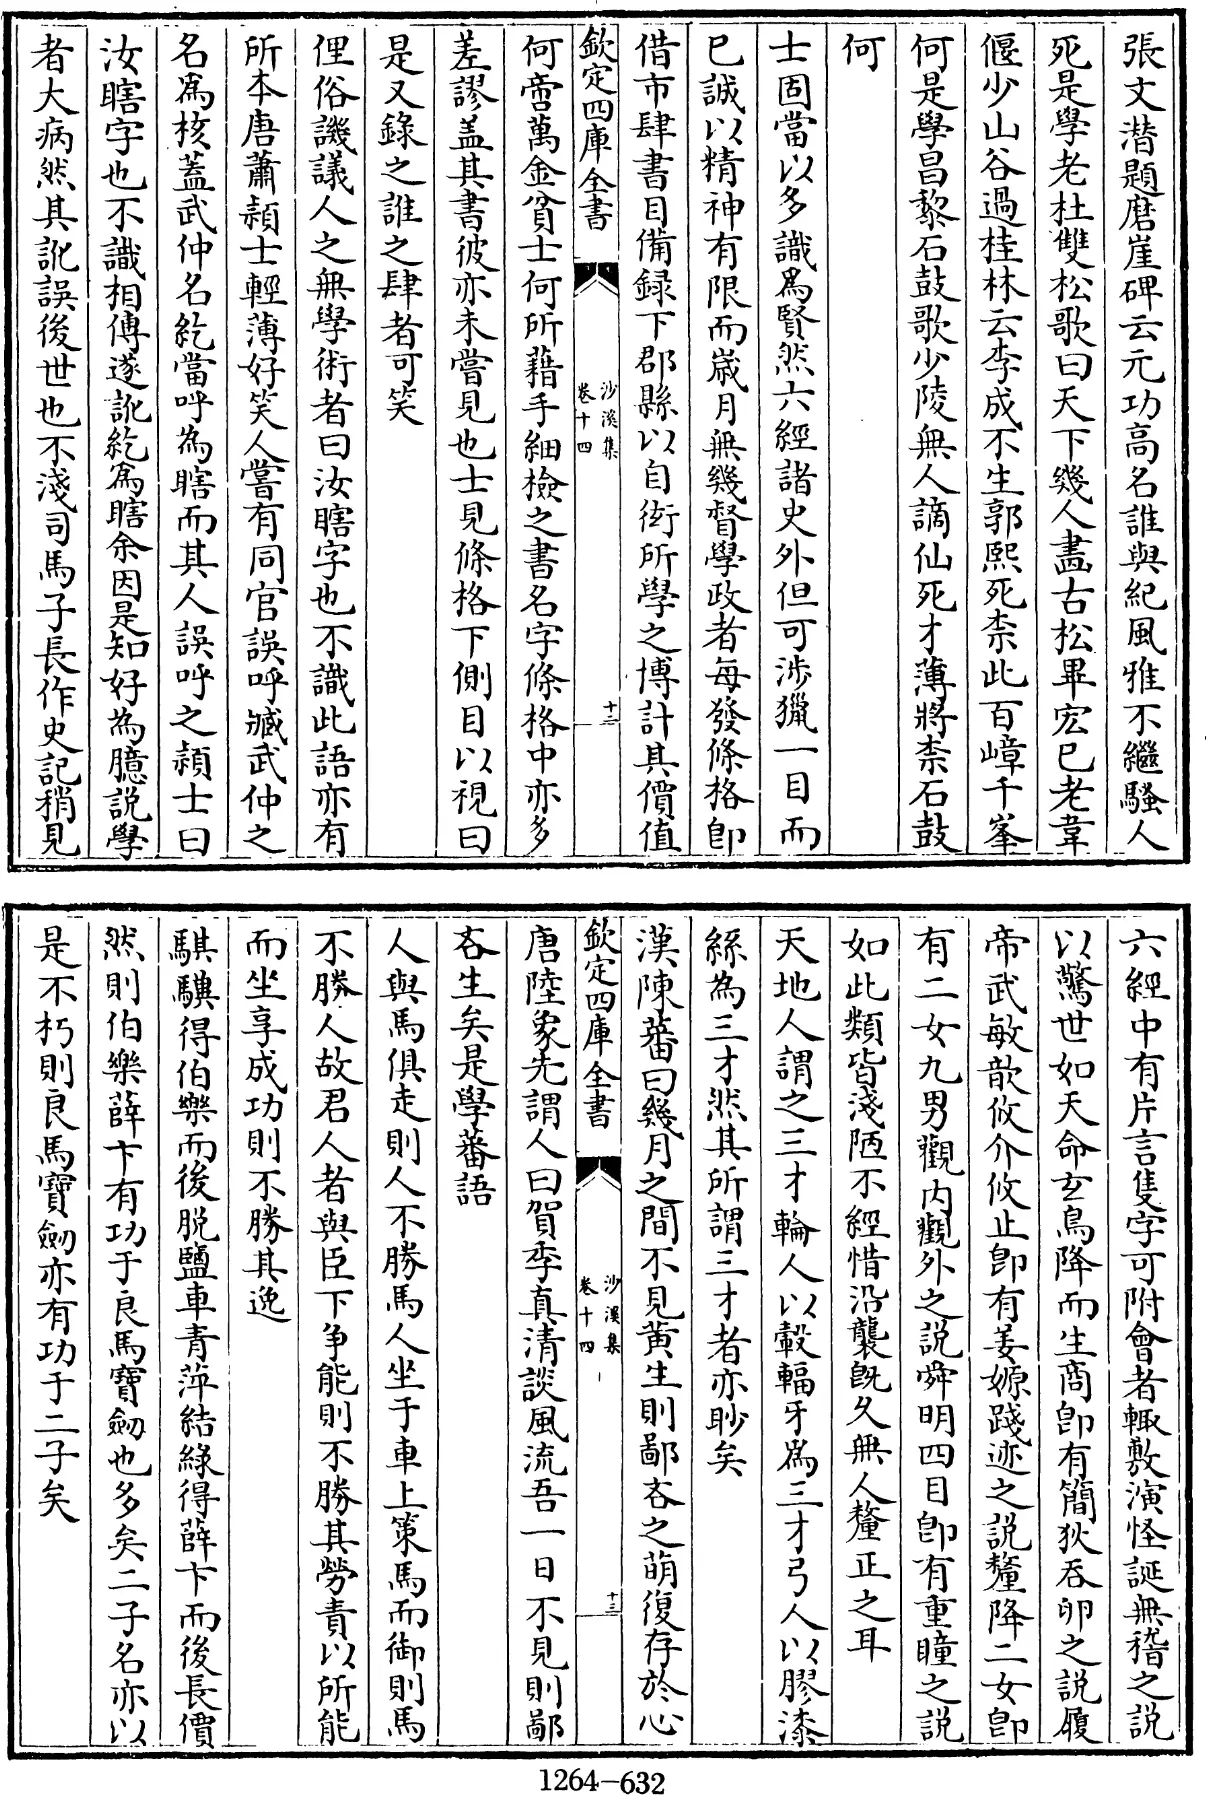 張文潜題磨崖碑云元功高名誰與紀風雅不繼騷人
死是學老杜雙松歌曰天下幾人畵古松畢宏已老韋
偃少山谷過桂林云李成不生郭熙死柰此百嶂千峯
何是學昌黎石鼓歌少陵無人謫仙死才薄將柰石鼓
何
士固當以多識爲賢然六經諸史外但可涉獵一目而
已誠以精神有限而嵗月無幾督學政者每發條格卽
借市肆書目備録下郡縣以自衒所學之博計其價值
欽定四庫全書
沙溪集
卷十四
十二
何啻萬金貧士何所藉手細檢之書名字條格中亦多
差謬盖其書彼亦未嘗見也士見條格下側目以視曰
是又錄之誰之肆者可笑
俚俗譏議人之無學術者曰汝瞎字也不識此語亦有
所本唐蕭頴士輕薄好笑人嘗有同官誤呼臧武仲之
名爲核蓋武仲名紇當呼為瞎而其人誤呼之頴士曰
汝瞎字也不識相傳遂訛紇爲瞎余因是知好為臆説學
者大病然其訛誤後世也不淺司馬子長作史記稍見
六經中有片言隻字可附會者輙敷演怪誕無稽之説
以驚世如天命玄鳥降而生商卽有簡狄吞卵之説履
帝武敏歆攸介攸止卽有姜嫄踐迹之説釐降二女卽
有二女九男觀内觀外之説舜明四目卽有重瞳之説
如此類皆淺陋不經惜沿襲旣久無人釐正之耳
天地人謂之三才輪人以轂輻牙爲三才弓人以膠漆
絲為三才然其所謂三才者亦眇矣
漢陳蕃曰幾月之間不見黄生則鄙吝之萌復存於心
欽定四庫全書
沙溪集
卷十四
十三
唐陸象先謂人曰賀季真清談風流吾一日不見則鄙
吝生矣是學蕃語
人與馬俱走則人不勝馬人坐于車上策馬而御則馬
不勝人故君人者與臣下争能則不勝其勞責以所能
而坐享成功則不勝其逸
騏驥得伯樂而後脱鹽車青萍結緑得薛卞而後長價
然則伯樂薛卞有功于良馬寶劒也多矣二子名亦以
是不朽則良馬寶劒亦有功于二子矣
1264-632